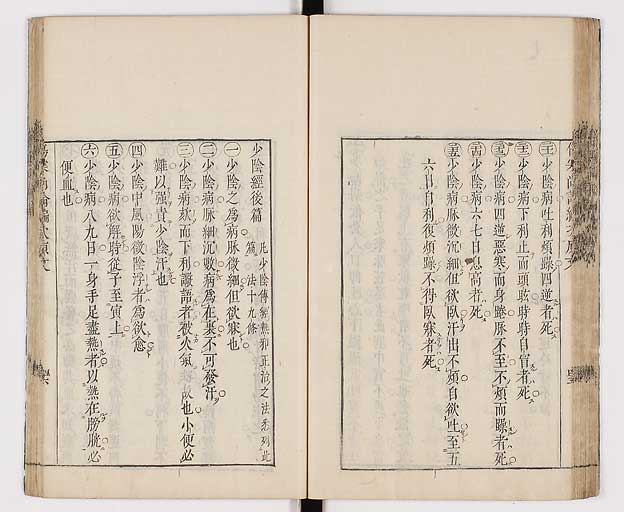 ㊂少陰病吐利煩躁四逆者死
㊂少陰病下利止而頭眩時時自冒者死
少陰病四逆惡寒而身踡脉不至不煩而躁者死
少陰病六七日息高者死
少陰病脉微沉細但欲臥汗出不煩自欲吐至五
六日自利復煩躁不得臥寐者死
少陰經後篇
凡少陰傳經熱邪正治之法悉列此
篇 法十九條
㊀少陰之爲病脉微細但欲寐也
㊁少陰病脉細沉數病爲在裏不可發汗
㊂少陰病欬而下利譫語者被火氣劫故也小便必
難以強責少陰汗也
㊃少陰中風陽微陰浮者爲欲愈
㊄少陰病欲解時從子至寅上
㊅少陰病八九日一身手足盡熱者以熱在膀胱必
便血也